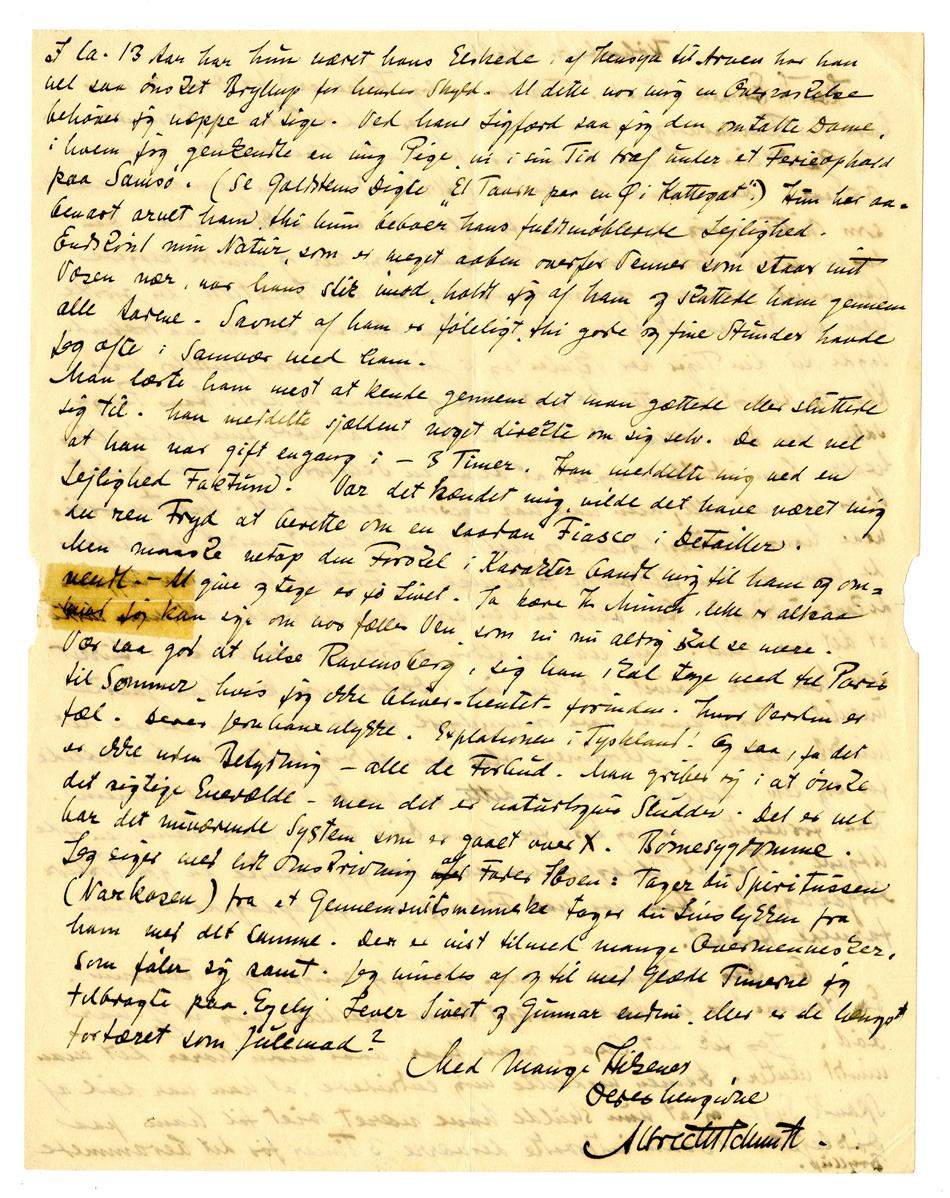 I Ca. 13 Aar har hun været hans Elskede, af Hensyn til Arven har han
vel saa ønsket Bryllup for hendes Skyld. At dette var mig en Overraskelse
behøver jeg næppe at sige. Ved hans Ligfærd saa jeg den omtalte Dame,
i hvem jeg genkendte en ung Pige, vi i sin Tid traf under et Ferieophold
paa Samsø. (Se Goldsteins Digte "Et Taarn paa en Ø i Kattegat".) Hun har aa=
benbart arvet ham, thi hun beboer hans fuldtmøblerede Lejlighed.
Endskönt min Natur, som er meget aaben overfor Venner som staar mit
Væsen nær, var hans stik imod, holdt jeg af ham og skattede ham gennem
alle Aarene. Savnet af ham er føleligt, thi gode og fine Stunder havde
jeg ofte i Samvær med ham.
Man lærte ham mest at kende gennem det man gættede eller sluttede
sig til. han meddelte sjældent noget direkte om sig selv. De ved vel
at han var gift engang i – 3 Timer. Han meddelte mig ved en
Lejlighed Faktum. Var det hændet mig, vilde det have været mig
en ren Fryd at berette om en saadan Fiasco i Detailler.
Men maaske netop den Forskel i Karakter bandt mig til ham og om=
vendt. – At give og tage er jo Livet. Ja kære Hr Munch, dette er altsaa
hvad jeg kan sige om vor fælles Ven, som vi nu aldrig skal se mere.
Vær saa god at hilse Ravensberg, sig han skal tage med til Paris
til Sommer, hvis jeg ikke bliver – hentet – forinden. Hvor Verden er
fæl. Deres Jernbaneulykke. Explotionen i Tyskland! Og saa, ja det
er ikke uden Betydning – alle de Forbud. Man griber sig i at ønske
det rigtige Enevælde – men det er naturligvis Sludder. Det er vel
bar det nuværende System som er gaaet over X. Børnesygdomme.
Jeg siger med lidt Omskrivning af Fader Ibsen: Tager du Spiritussen
(Narkosen) fra et Gennemsnitsmenneske tager du Livslykken fra
ham med det samme. Der er vist tilmed mange Overmennesker,
som føler sig ramt. Jeg mindes af og til med Glæde Timerne jeg
tilbragte paa Ekely. Lever Sivert og Gunnar endnu, eller er de længst
fortæret som Julemad?
Med mange Hilsener
Deres hengivne
Albrecht Schmidt.